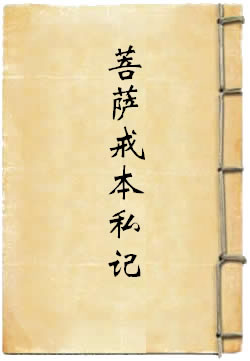 菩萨戒本私记